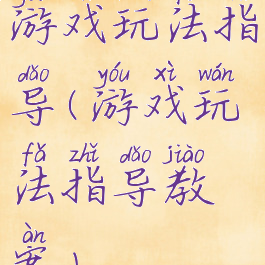 游戏玩法指
dǎo yóu xì wán
导(游戏玩
fǎ zhǐ dǎo jiào
法指导教
àn
案)